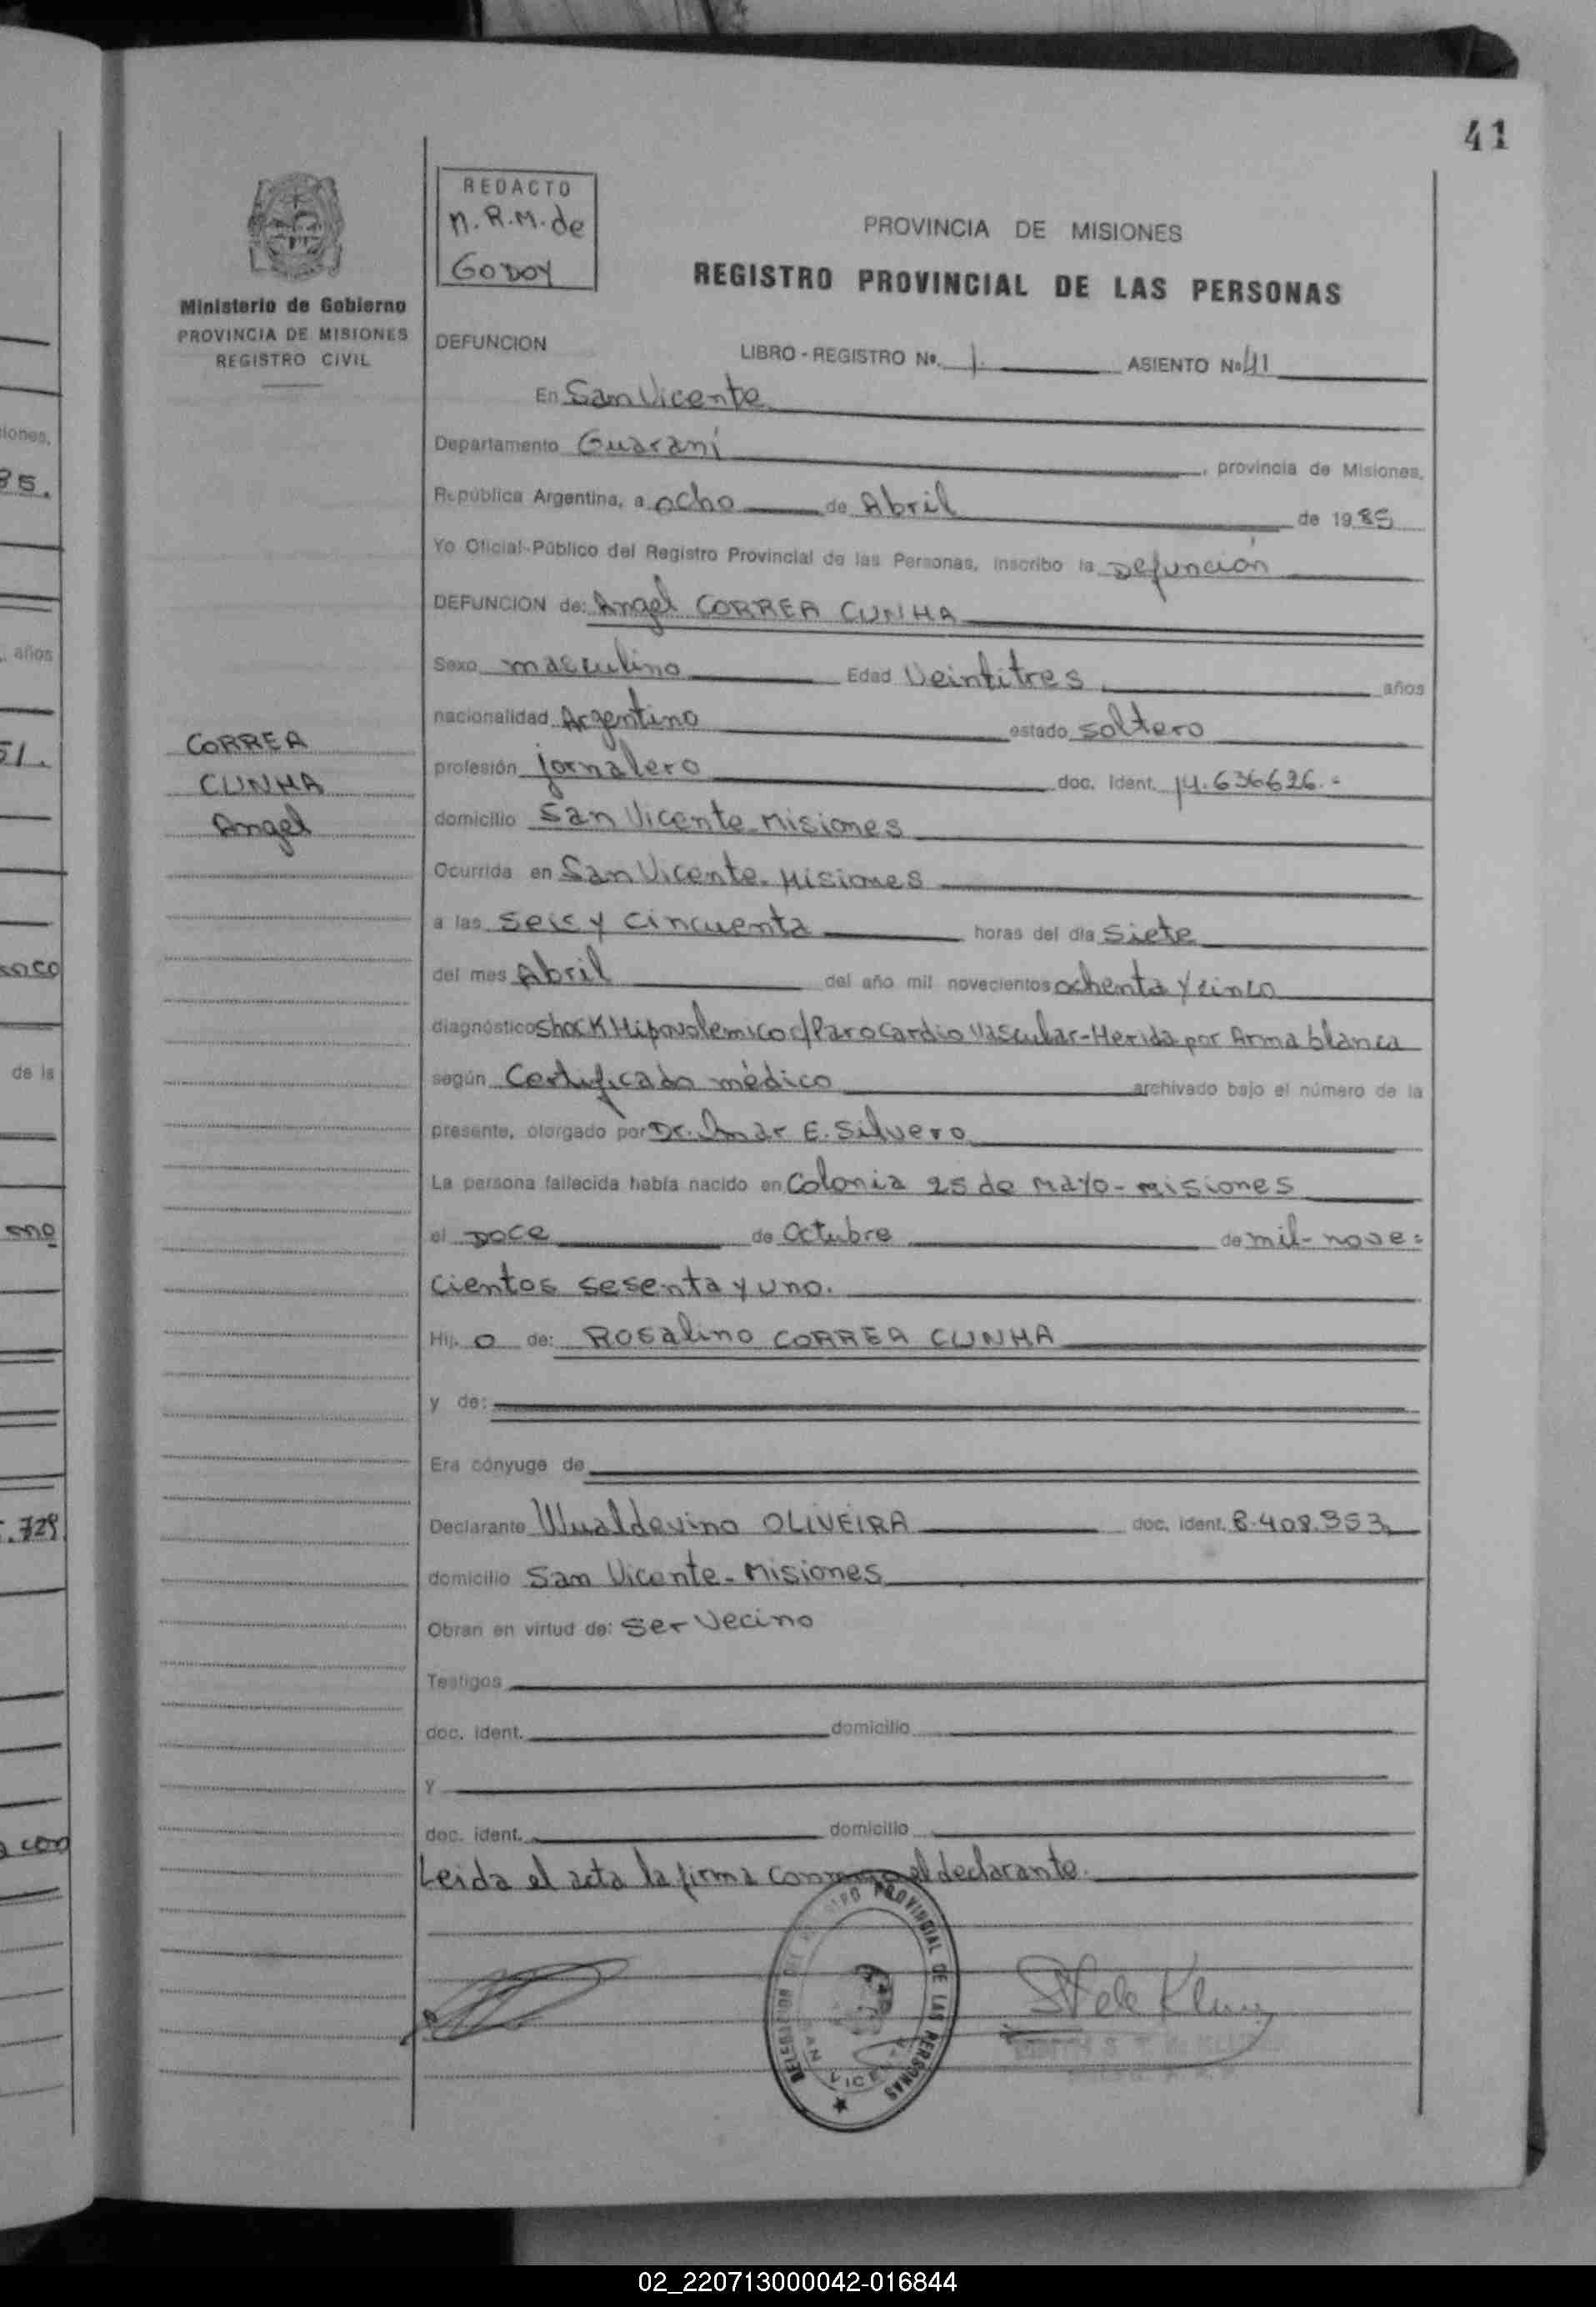 41
REDACTO
n.R.M. de
GODOY
PROVINCIA DE MISIONES
REGISTRO PROVINCIAL DE LAS PERSONAS
Ministerio de Gobierno
PROVINCIA DE MISIONES
REGISTRO CIVIL
DEFUNCION
LIBRO - REGISTRO Nº. 1. ASIENTO Nº 41
En San Vicente
Departamento Guaraní, provincia de Misiones,
República Argentina, a ocho de Abril de 1985
Yo Oficial Público del Registro Provincial de las Personas, inscribo la Defunción
DEFUNCION de: Angel CORREA CUNHA
Sexo masculino Edad Veintitres años
nacionalidad Argentino estado soltero
profesión jornalero doc. ident. 14.636626.-
domicilio San Vicente-Misiones
Ocurrida en San Vicente-Misiones
a las seis y cincuenta horas del día siete
del mes Abril del año mil novecientos ochenta y cinco
diagnóstico Shock Hipovolemico c/Paro Cardio Vascular-Herida por Arma blanca
según Certificado médico archivado bajo el número de la
presente, otorgado por Dr. Omar E. Silvero
La persona fallecida había nacido en Colonia 25 de Mayo-Misiones
el Doce de Octubre de mil-nove=
cientos sesenta y uno.
Hij o de: Rosalino CORREA CUNHA
y de:
Era cónyuge de
Declarante Wualdevino OLIVEIRA doc. ident. 8.408.353
domicilio San Vicente-Misiones
Obran en virtud de: ser Vecino
Testigos
doc. ident. domicilio
y
doc. ident. domicilio
Leida el acta la firma conmigo el declarante.
CORREA
CUNHA
Angel
iones,
85.
años
51.
de la
.729
con
DELEGACION DEL REGISTRO PROVINCIAL DE LAS PERSONAS
SAN VICENTE
02_220713000042-016844